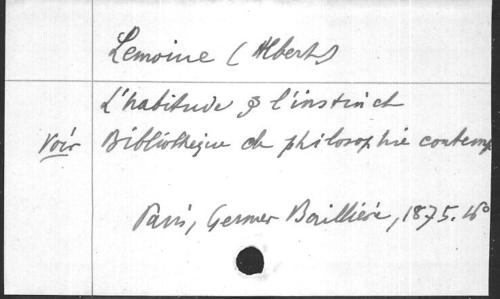 Lemoine (Albert)
L'habitude & l'instinct
Voir Bibliothèque de philosophie contemp
Paris, Germer Baillière, 1875. 16°